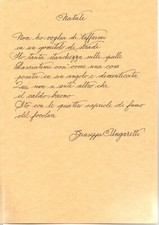 Natale
Non ho voglia di tuffarmi
in un gomitolo di strade
Ho tanta stanchezza sulle spalle
Lasciatemi così come una cosa
posata in un angolo e dimenticata
Qui non si sente altro che
il caldo buono
Sto con le quattro capriole di fumo
del focolare
Giuseppe Ungaretti